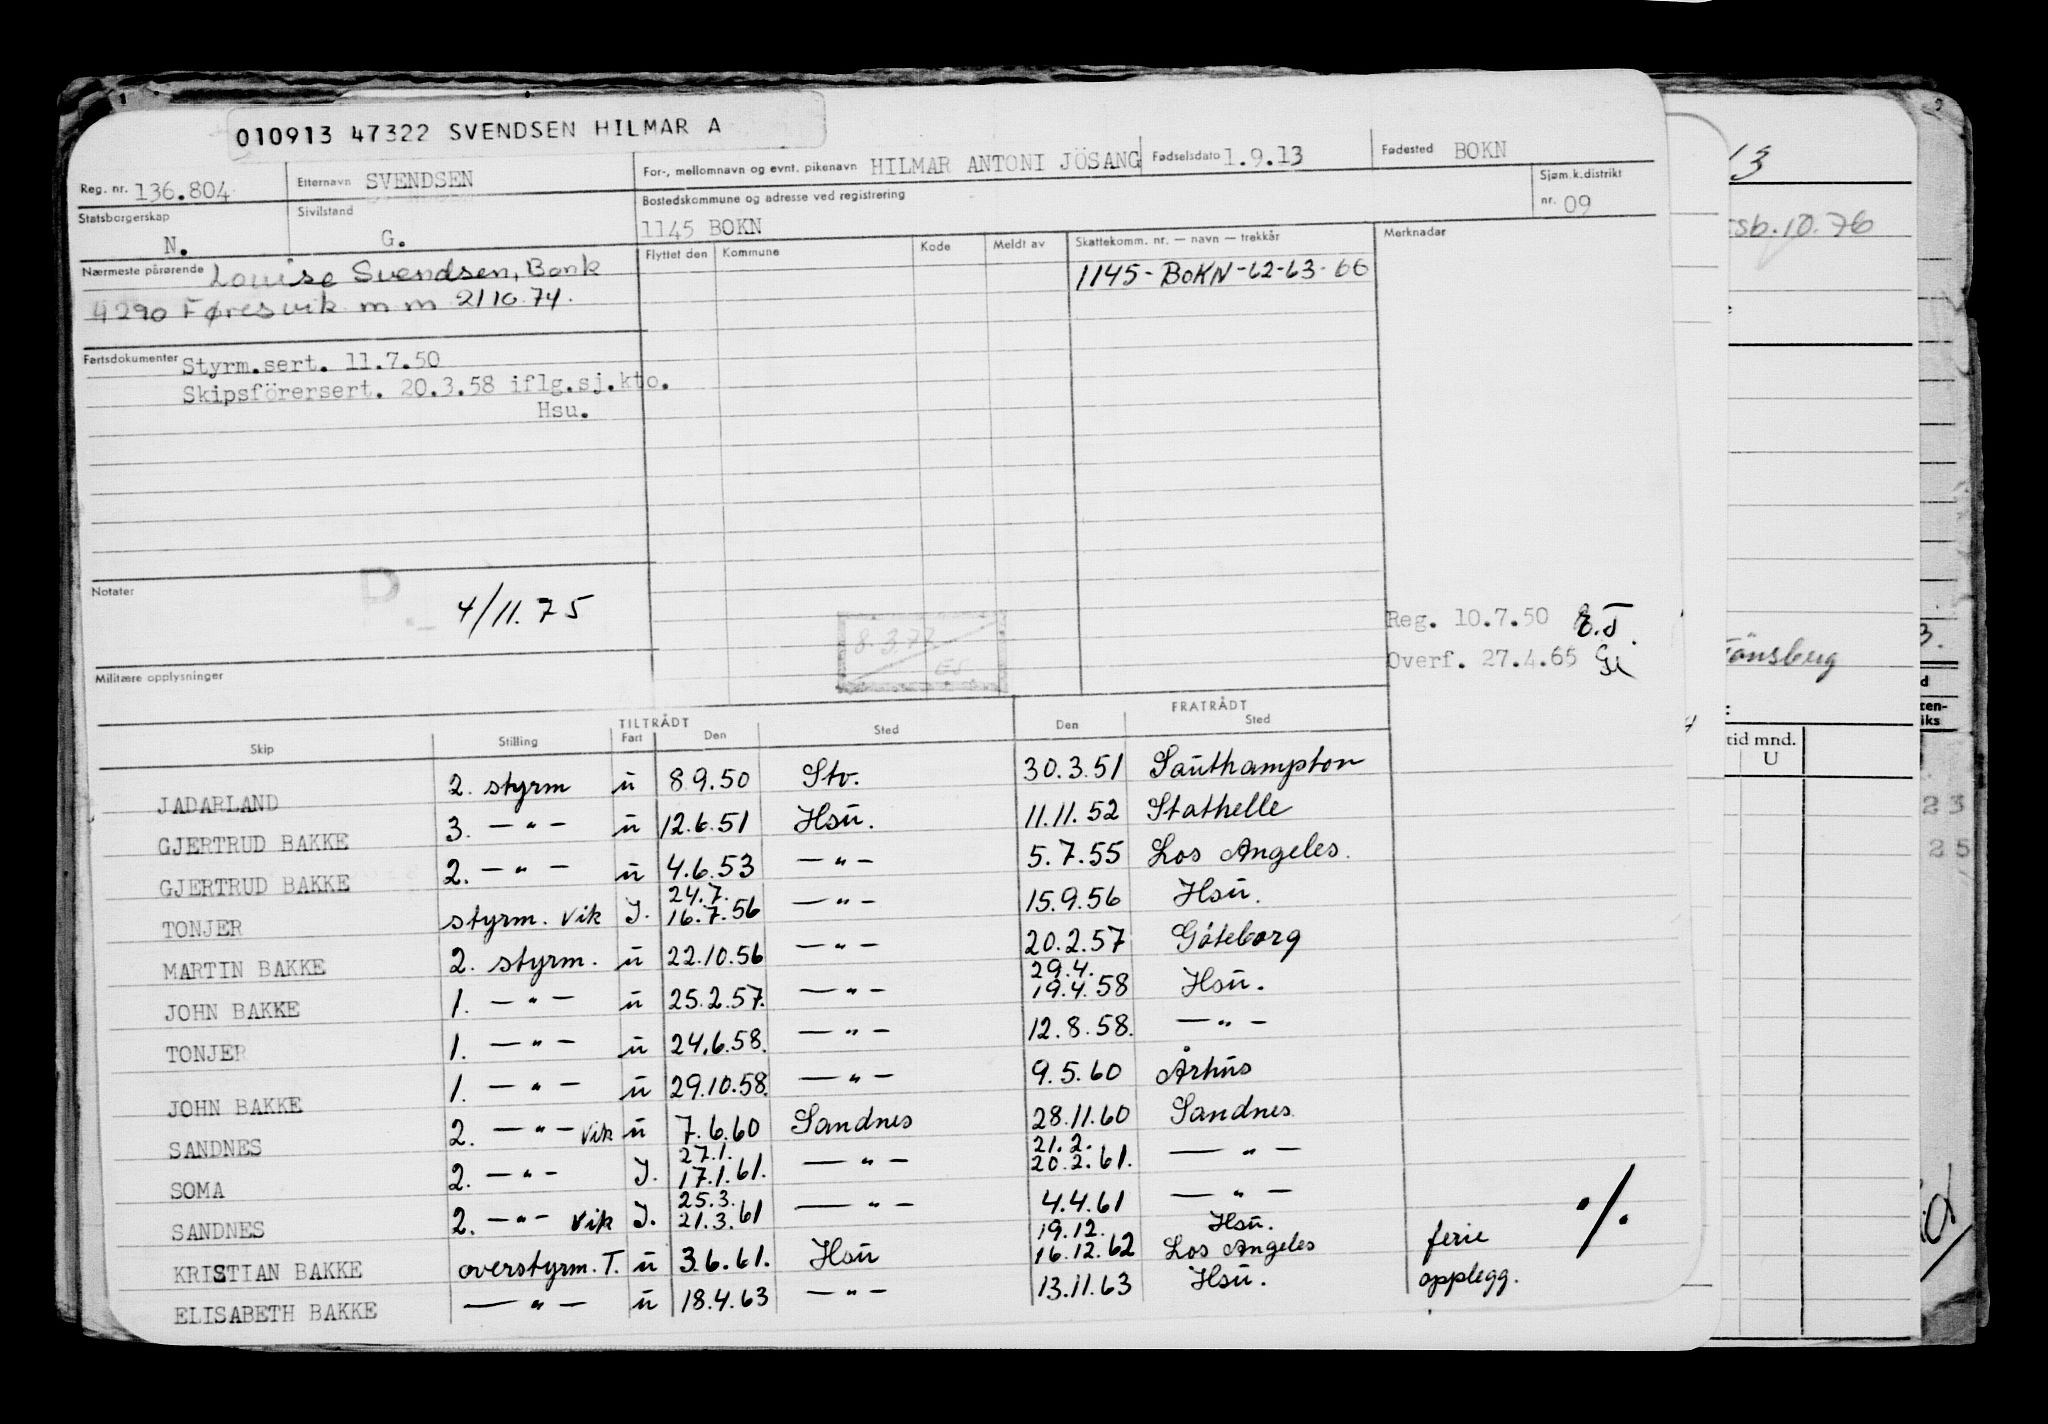 010913 47322 SVENDSEN HILMAR A
Reg. nr. 136.804 Etternavn SVENDSEN For-, mellomnavn og evnt. pikenavn HILMAR ANTONI JÖSANG Fødselsdato 1.9.13 Fødested BOKN
Statsborgerskap N. Sivilstand G. Bostedskommune og adresse ved registrering 1145 BOKN Sjøm.k.distrikt nr. 09
Nærmeste pårørende Louise Svendsen, Bonk
4290 Føresvik m m 21 10 74.
Flyttet den Kommune Kode Meldt av Skattekomm. nr. — navn — trekkår Merknader
1145 - BOKN - 62 - 63 - 66
Fartsdokumenter Styrm.sert. 11.7.50
Skipsförersert. 20.3.58 iflg.sj.kto.
Hsu.
Notater
D.
4/11.75
8.3.77
Reg. 10.7.50
Overf. 27.4.65
Militære opplysninger
TILTRÅDT FRATRÅDT
Skip Stilling Fart Den Sted Den Sted
JADARLAND 2. styrm u 8.9.50 Stv. 30.3.51 Southampton
GJERTRUD BAKKE 3. — " — u 12.6.51 Hsu. 11.11.52 Stathelle
GJERTRUD BAKKE 2. — " — u 4.6.53 — " — 5.7.55 Los Angeles.
TONJER styrm. vik I. 24.7. 16.7.56 — " — 15.9.56 Hsu.
MARTIN BAKKE 2. styrm. u 22.10.56 — " — 20.2.57 Göteborg
JOHN BAKKE 1. — " — u 25.2.57. — " — 29.4. 19.4.58 Hsu.
TONJER 1. — " — u 24.6.58. — " — 12.8.58. — " —
JOHN BAKKE 1. — " — u 29.10.58. — " — 9.5.60 Århus
SANDNES 2. — " — vik u 7.6.60 Sandnes 28.11.60 Sandnes
SOMA 2. — " — I. 27.1. 17.1.61. — " — 21.2. 20.2.61. — " —
SANDNES 2. — " — vik I. 25.3. 21.3.61 — " — 4.4.61 — " —
KRISTIAN BAKKE overstyrm. T. u 3.6.61. Hsu 19.12. 16.12.62 Hsu. Los Angeles ferie
ELISABETH BAKKE — " — u 18.4.63 — " — 13.11.63 Hsu. opplegg.
./.
13
10.76
Tönsberg
tid mnd.
U
23
25